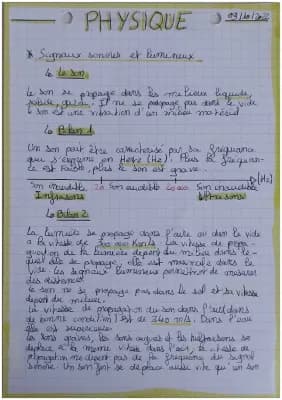 09/10/20
PHYSIQUE
* Signaux sonores et lumineux
↳ Le son
Le son se propage dans les milieux liquide,
solide, gazeux. Il ne se propage pas dans le vide
Le son est une vibration d'un milieu matériel
↳ Bilan 1
Un son peut être caractérisé par sa fréquence
qui s'exprime en Hertz (Hz). Plus la fréquen-
ce est faible, plus le son est grave.
Son inaudible 20 Son audible 20 000 Son inaudible (Hz)
Infrasons Ultrasons
↳ Bilan 2
La lumière se propage dans l'air ou dans le vide
à la vitesse de 300 000 Km/s. La vitesse de propa-
gation de la lumière dépend du milieu dans le-
quel elle se propage, elle est maximale dans le
vide. Les signaux lumineux permettent de mesurer
des distances.
Le son ne se propage pas dans le sol et sa vitesse
dépend du milieu.
La vitesse de propagation du son dans l'air dans
de bonne condition est de 340 m/s. Dans l'eau
elle est supérieure.
Les sons graves, les sons aigus et les ultrasons se
déplace à la même vitesse dans l'air, la vitesse de
propagation ne dépend pas de la fréquence du signal
sonore. Un son fort se déplace aussi vite qu'un son